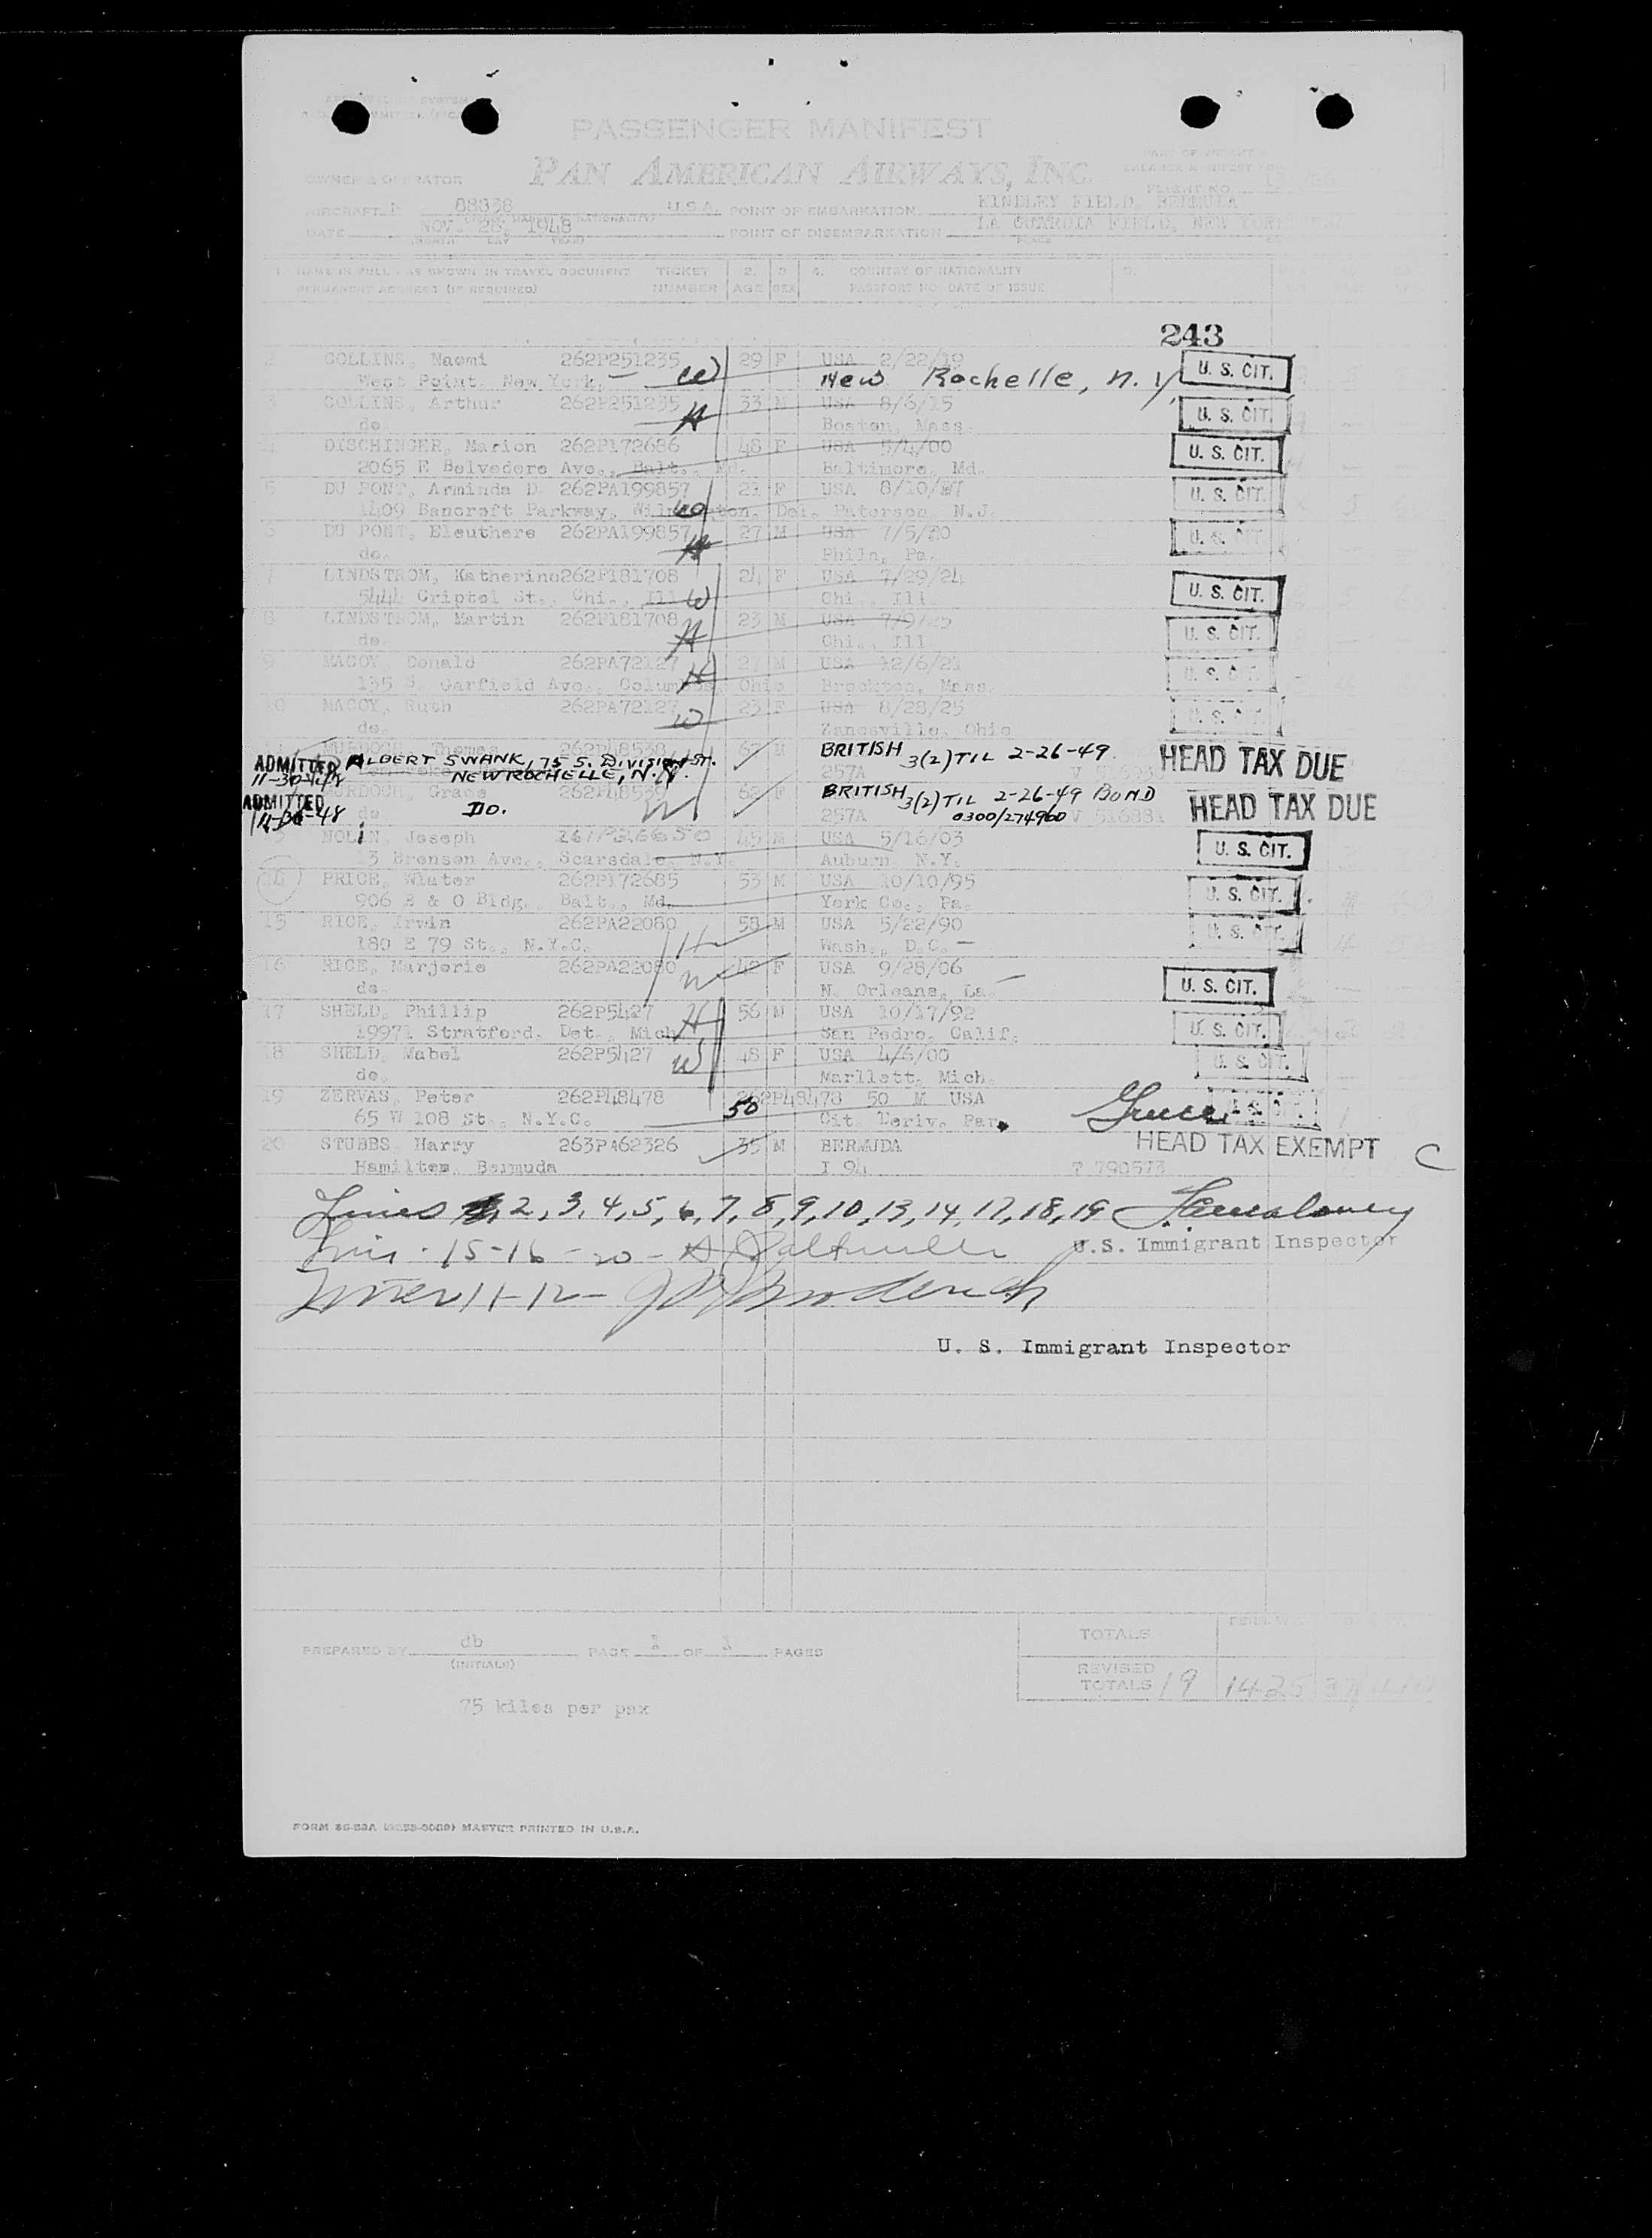 PASSENGER MANIFEST
PAN AMERICAN AIRWAYS, INC.
OWNER & OPERATOR
FLIGHT NO.
AIRCRAFT N 88838 U.S.A. POINT OF EMBARKATION KINDLEY FIELD, BERMUDA
DATE NOV. 28, 1948 POINT OF DISEMBARKATION LA GUARDIA FIELD, NEW YORK
(MONTH DAY YEAR) PLACE
1. NAME IN FULL - AS SHOWN IN TRAVEL DOCUMENT TICKET 2. 3 4. COUNTRY OF NATIONALITY 5.
PERMANENT ADDRESS (IF REQUIRED) NUMBER AGE SEX PASSPORT NO. DATE OF ISSUE
243
2 COLLINS, Naomi 262P251235 29 F USA 2/22/19 U. S. CIT.
West Point, New York, W New Rochelle, N.Y.
3 COLLINS, Arthur 262P251235 33 M USA 8/6/15 U. S. CIT.
do. H Boston, Mass.
DISCHINGER, Marion 262P172686 48 F USA 5/4/00 U. S. CIT.
2065 E Belvedere Ave., Balt., Md. Baltimore, Md.
5 DU PONT, Arminda D. 262PA199857 21 F USA 8/10/27 U. S. CIT.
1409 Bancroft Parkway, Wilmington, Del. Paterson, N.J.
6 DU PONT, Eleuthere 262PA199857 27 M USA 7/5/20 U. S. CIT.
do. H Phila, Pa.
7 LINDSTROM, Katherine 262P181708 24 F USA 7/29/24 U. S. CIT.
5444 Criptol St., Chi., Ill W Chi., Ill
8 LINDSTROM, Martin 262P181708 23 M USA 7/9/25 U. S. CIT.
do. H Chi., Ill
9 MACOY, Donald 262PA72127 27 M USA 12/6/21 U. S. CIT.
135 S. Garfield Ave., Columbus, Ohio H Brockton, Mass.
10 MACOY, Ruth 262PA72127 23 F USA 8/28/25 U. S. CIT.
do. W Zanesville, Ohio
MURDOCH, Thomas 262P48538 M BRITISH 3(2) TIL 2-26-49 HEAD TAX DUE
ADMITTED 11-30-48 ALBERT SWANK, 75 S. DIVISION ST. 257A
NEW ROCHELLE, N.Y.
MURDOCH, Grace 262P48539 62 F BRITISH 3(2) TIL 2-26-49 BOND HEAD TAX DUE
ADMITTED 11-30-48 do. DO. W 257A 0300/274960
NOLIN, Joseph 45 M USA 5/16/03 U. S. CIT.
13 Bronson Ave., Scarsdale, N.Y. Auburn, N.Y.
14 PRICE, Wlater 262P172685 53 M USA 10/10/95 U. S. CIT.
906 B & O Bldg., Balt., Md. York Co., Pa.
15 RICE, Irvin 262PA22080 58 M USA 5/22/90 U. S. CIT.
180 E 79 St., N.Y.C. H Wash., D.C.
16 RICE, Marjorie 262PA22080 42 F USA 9/28/06 U. S. CIT.
do. W N. Orleans, La.
17 SHELD, Phillip 262P5427 56 M USA 10/17/92 U. S. CIT.
19971 Stratford, Det., Mich H San Pedro, Calif.
18 SHELD, Mabel 262P5427 48 F USA 4/6/00 U. S. CIT.
do. W Marllett, Mich.
19 ZERVAS, Peter 262P48478 262P48478 50 M USA Greece U. S. CIT.
65 W 108 St., N.Y.C. 50 Cit. Deriv. Par.
20 STUBBS, Harry 263PA62326 35 M BERMUDA HEAD TAX EXEMPT C
Hamilton, Bermuda I 94 T 790573
Lines 2, 3, 4, 5, 6, 7, 8, 9, 10, 13, 14, 17, 18, 19
15-16-20-
U.S. Immigrant Inspector
Lines 11-12-
U. S. Immigrant Inspector
TOTALS
PREPARED BY db PAGE 2 OF 3 PAGES
(INITIALS)
REVISED TOTALS 19 1425
75 kilos per pax
MASTER PRINTED IN U.S.A.